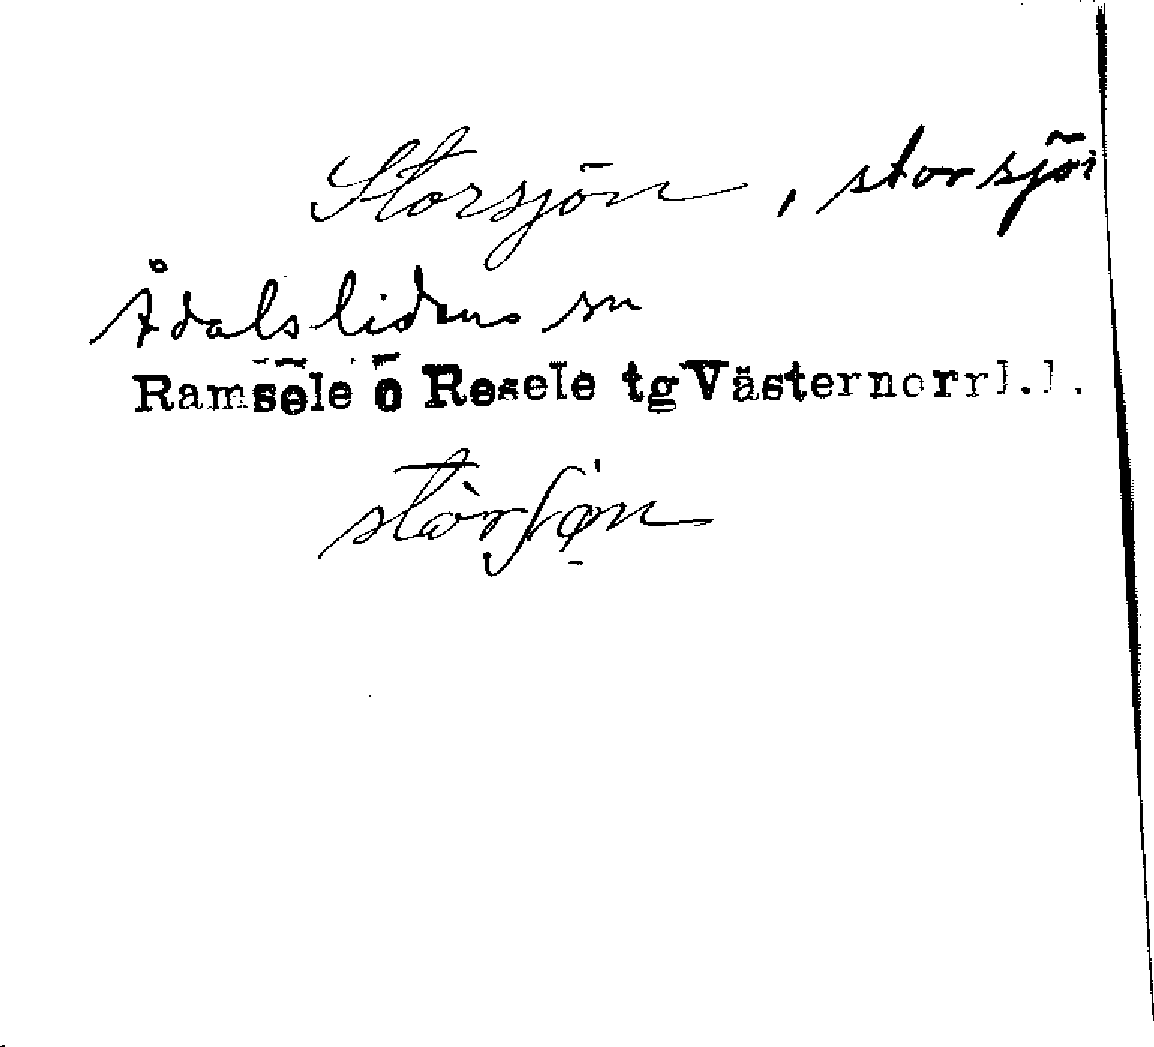 Storsjön, storsjön
Ådalslidens sn
Ramsele o Resele tg Västernorrl.l.